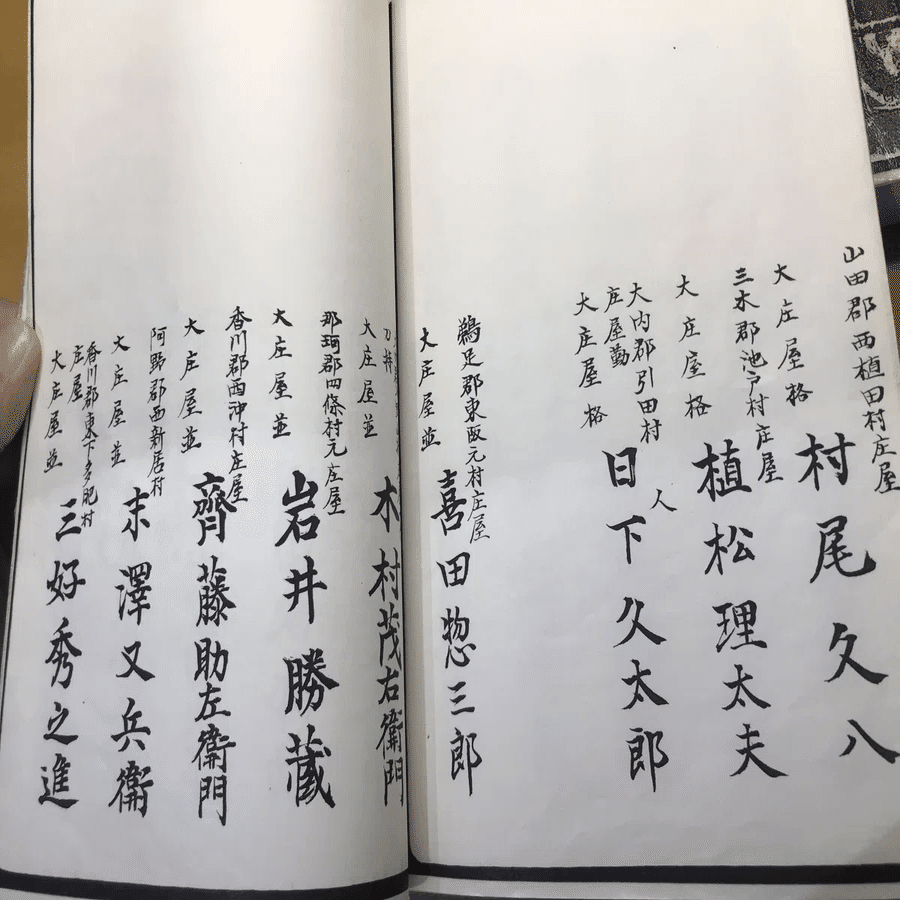 山田郡西植田村庄屋
大庄屋格
村尾久八
三木郡池戸村庄屋
大庄屋格
植松理太夫
人
大内郡引田村
庄屋勤
大庄屋格
日下久太郎
鵜足郡東阪元村庄屋
大庄屋並
喜田惣三郎
大庄屋並
木村茂右衛門
那珂郡四條村元庄屋
大庄屋並
岩井勝蔵
香川郡西神村庄屋
大庄屋並
齊藤助左衛門
阿野郡西新居村
大庄屋並
末澤又兵衛
香川郡東下多肥村
庄屋
大庄屋並
三好秀之進